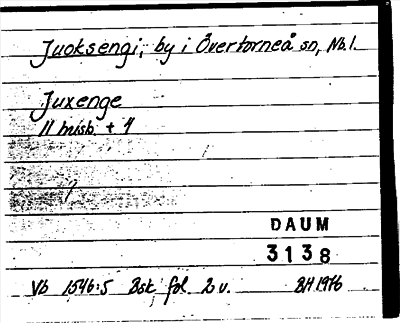 Juoksengi, by i Övertorneå sn, Nb.l.
Juxenge
11 hmsb. + 4
DAUM
3138
Vb 1546:5 Bsk, fol. 2 v. BH 1976